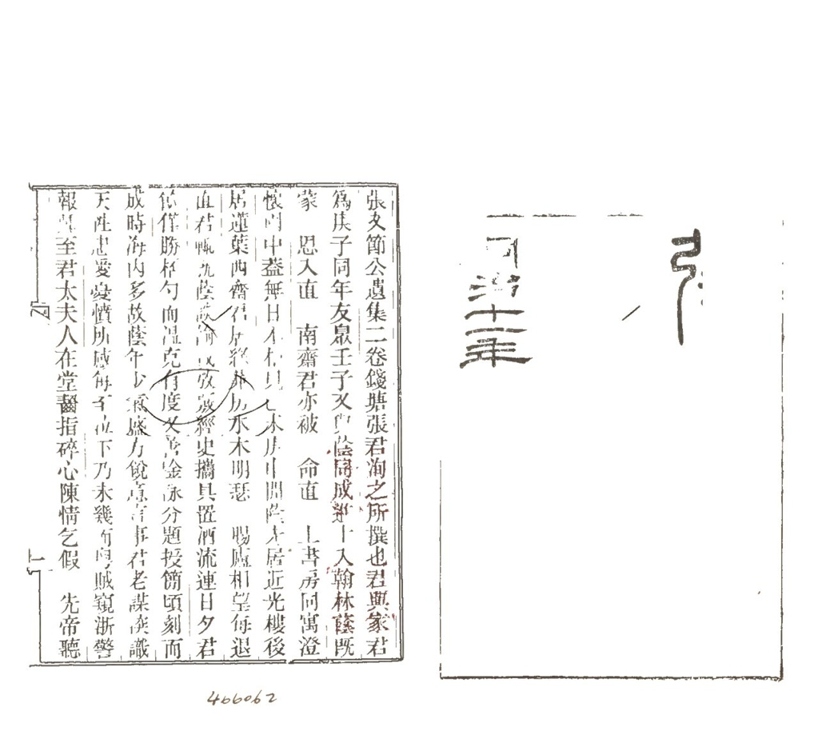 同治十二年
張文節公遺集二卷錢塘張君洵之所撰也君與家君
為庚子同年友歲壬子又與蔭同成進士入翰林蔭既
蒙 恩入直 南齋君亦被 命直 上書房同寓澄
懷園中蓋無日不相見 居近光樓後
居蓮葉西齋君居 水木明瑟 賜廬相望每退
直君輒就蔭 經史攜具置酒流連日夕君
飲僅勝 勺而溫克有度又善 分題授簡頃刻而
成時海內多故蔭年少氣盛方銳意言事君老謀深識
天性忠愛憂憤所感每至泣下乃未幾而粵賊窺浙警
報 至君太夫人在堂齧指碎心陳情乞假 先帝聽
一
466062